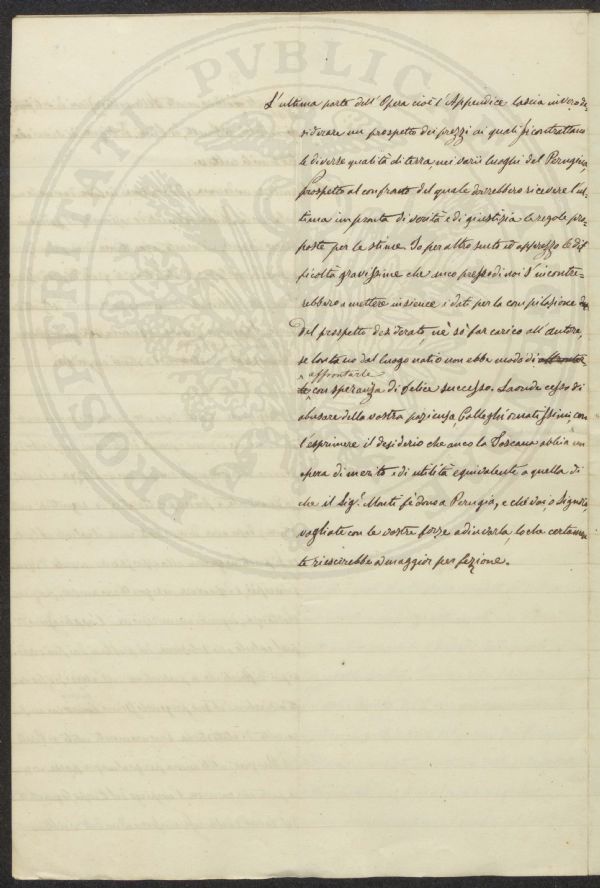 L'ultima parte dell'Opera cioè l'Appendice lascia invero de=
siderare un prospetto dei prezzi ai quali si contrattano
le diverse qualità di terra, nei varii luoghi del Perugino,
prospetto al confronto del quale dovrebbero ricevere l'ul=
tima impronta di verità e di giustizia le regole pro=
poste per le stime. Io per altro sento ed apprezzo le dif
ficoltà gravissime che anco presso di noi s'incontre=
rebbero a mettere insieme i dati per la compilazione
del prospetto desiderato, nè sò far carico all'autore,
se lontano dal luogo natio non ebbe modo di
affrontarle
con speranza di felice successo. Laonde cesso di
abusare della vostra pazienza, Colleghi ornatissimi, con
l'esprimere il desiderio che anco la Toscana abbia un
opera di merito e di utilità equivalente a quella di
che il Sig.r Monti fè dono a Perugia, e che voi o Signori
vogliate con le vostre forze adiuvarla, lo che certamen
te riescirebbe a maggior perfezione.
PVBLIC
PROSPERITATI